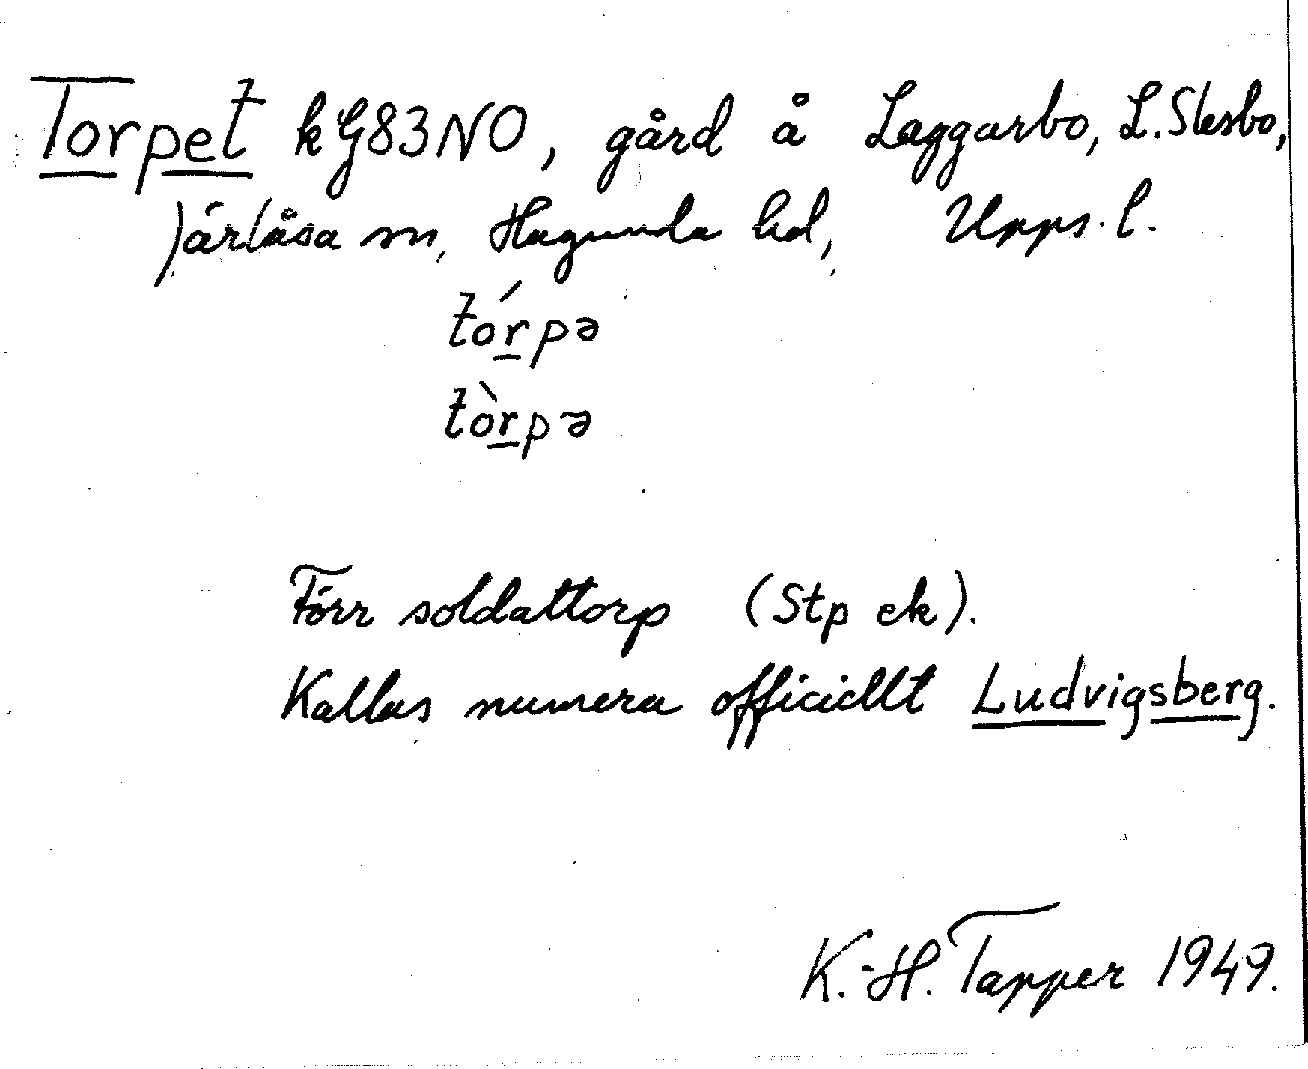 Torpet kG83NO, gård å Laggarbo, L. Stesbo,
Järlåsa sn, Hagunda hd, Upps. l.
tórpə
tòrpə
Förr soldattorp (Stp ek).
Kallas numera officiellt Ludvigsberg.
K.-H. Tapper 1949.